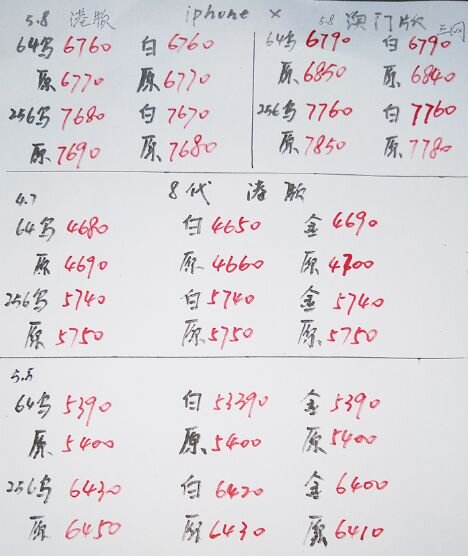 5.8 港版 iphone x 5.8 澳门版 三网
64乌 6760 白 6760 64乌 6790 白 6790
原 6770 原 6770 原 6850 原 6840
256乌 7680 白 7670 256乌 7760 白 7760
原 7690 原 7680 原 7850 原 7780
4.7 8代 港版
64乌 4680 白 4650 金 4690
原 4690 原 4660 原 4700
256乌 5740 白 5740 金 5740
原 5750 原 5750 原 5750
5.5
64乌 5390 白 53390 金 5390
原 5400 原 5400 原 5400
256乌 6430 白 6420 金 6400
原 6450 原 6430 原 6410